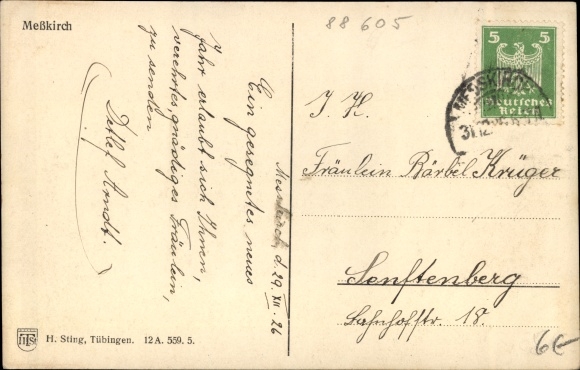 Meßkirch
88605
Messkirch, d. 29. XII. 26
Ein gesegnetes neues
Jahr erlaubt sich Ihnen,
verehrtes, gnädiges Fräulein,
zu senden
Detlef Arndt.
5 5
Deutsches
Reich
MESSKIRCH
31.12.
I. H.
Fräulein Bärbel Krüger
Senftenberg
Bahnhofstr. 18.
6€
HST
H. Sting, Tübingen. 12 A. 559. 5.